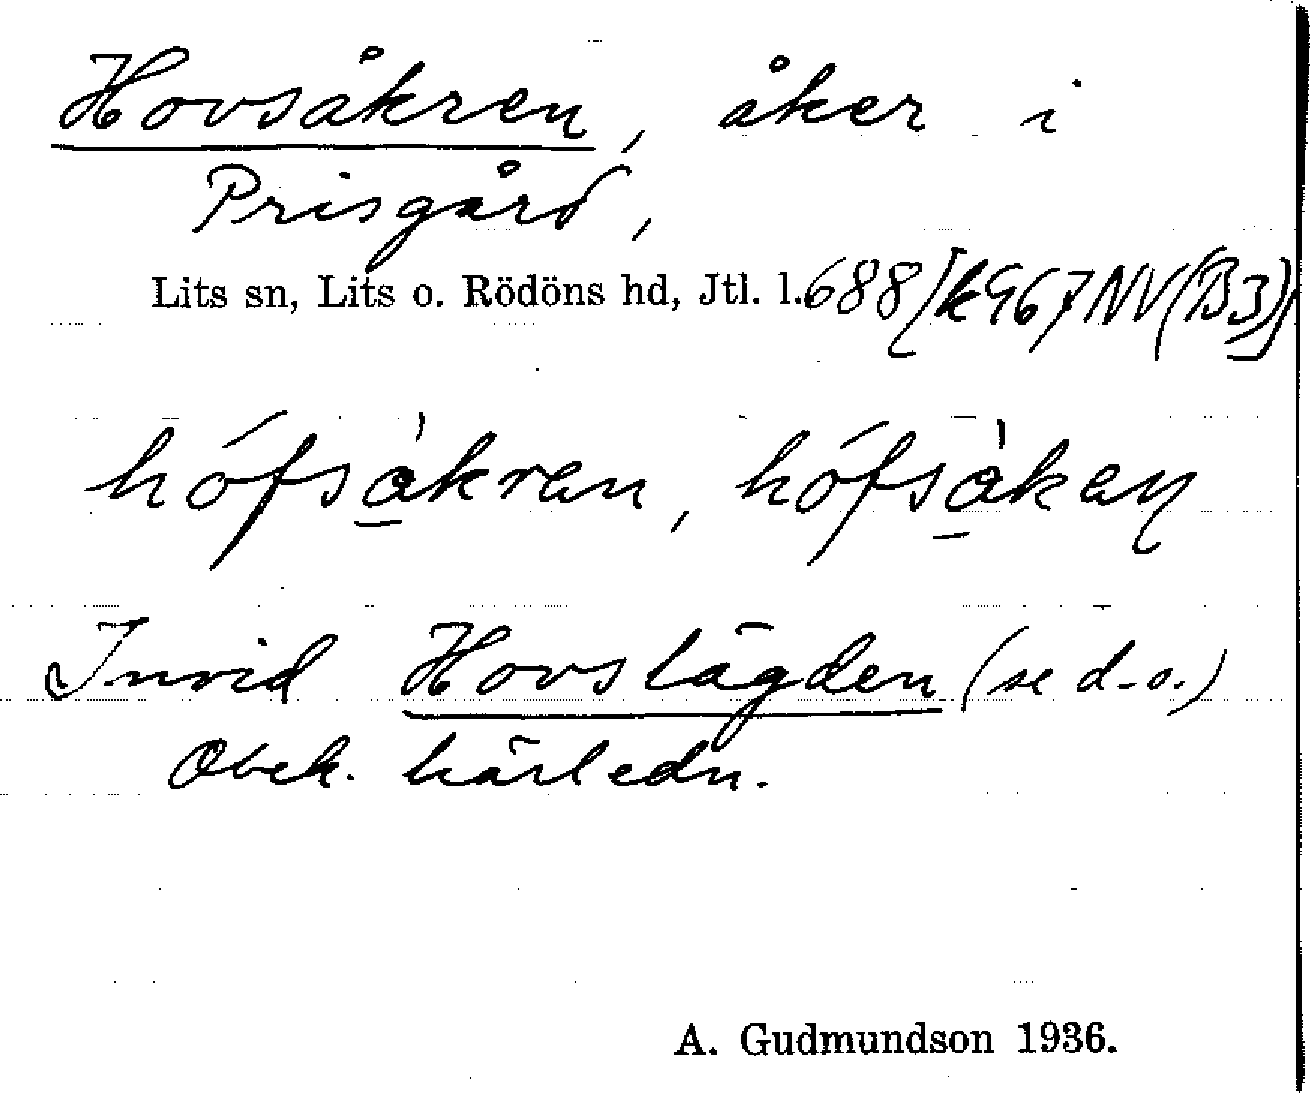 Hovsåkren, åker i
Prisgård,
Lits sn, Lits o. Rödöns hd, Jtl. l. 688 [k 967 NV (B3)]
hófsàkran, hófsàkaņ
Invid Hovslägden (se d.o.)
Obek. härledn.
A. Gudmundson 1936.